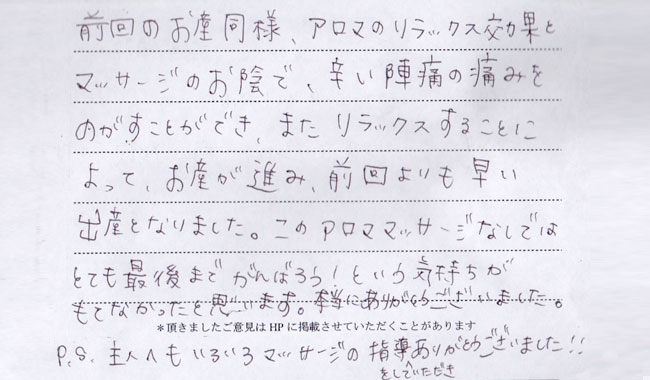 前回のお産同様、アロマのリラックス効果と
マッサージのお陰で、辛い陣痛の痛みを
のがすことができ、また リラックスすることに
よって、お産が進み、前回よりも早い
出産となりました。このアロママッサージなしでは
とても最後まで がんばろう!という気持ちが
もてなかったと思います。本当にありがとうございました。
＊頂きましたご意見は HP に掲載させていただくことがあります
P.S. 主人へもいろいろマッサージの 指導ありがとうございました!!
をして いただき